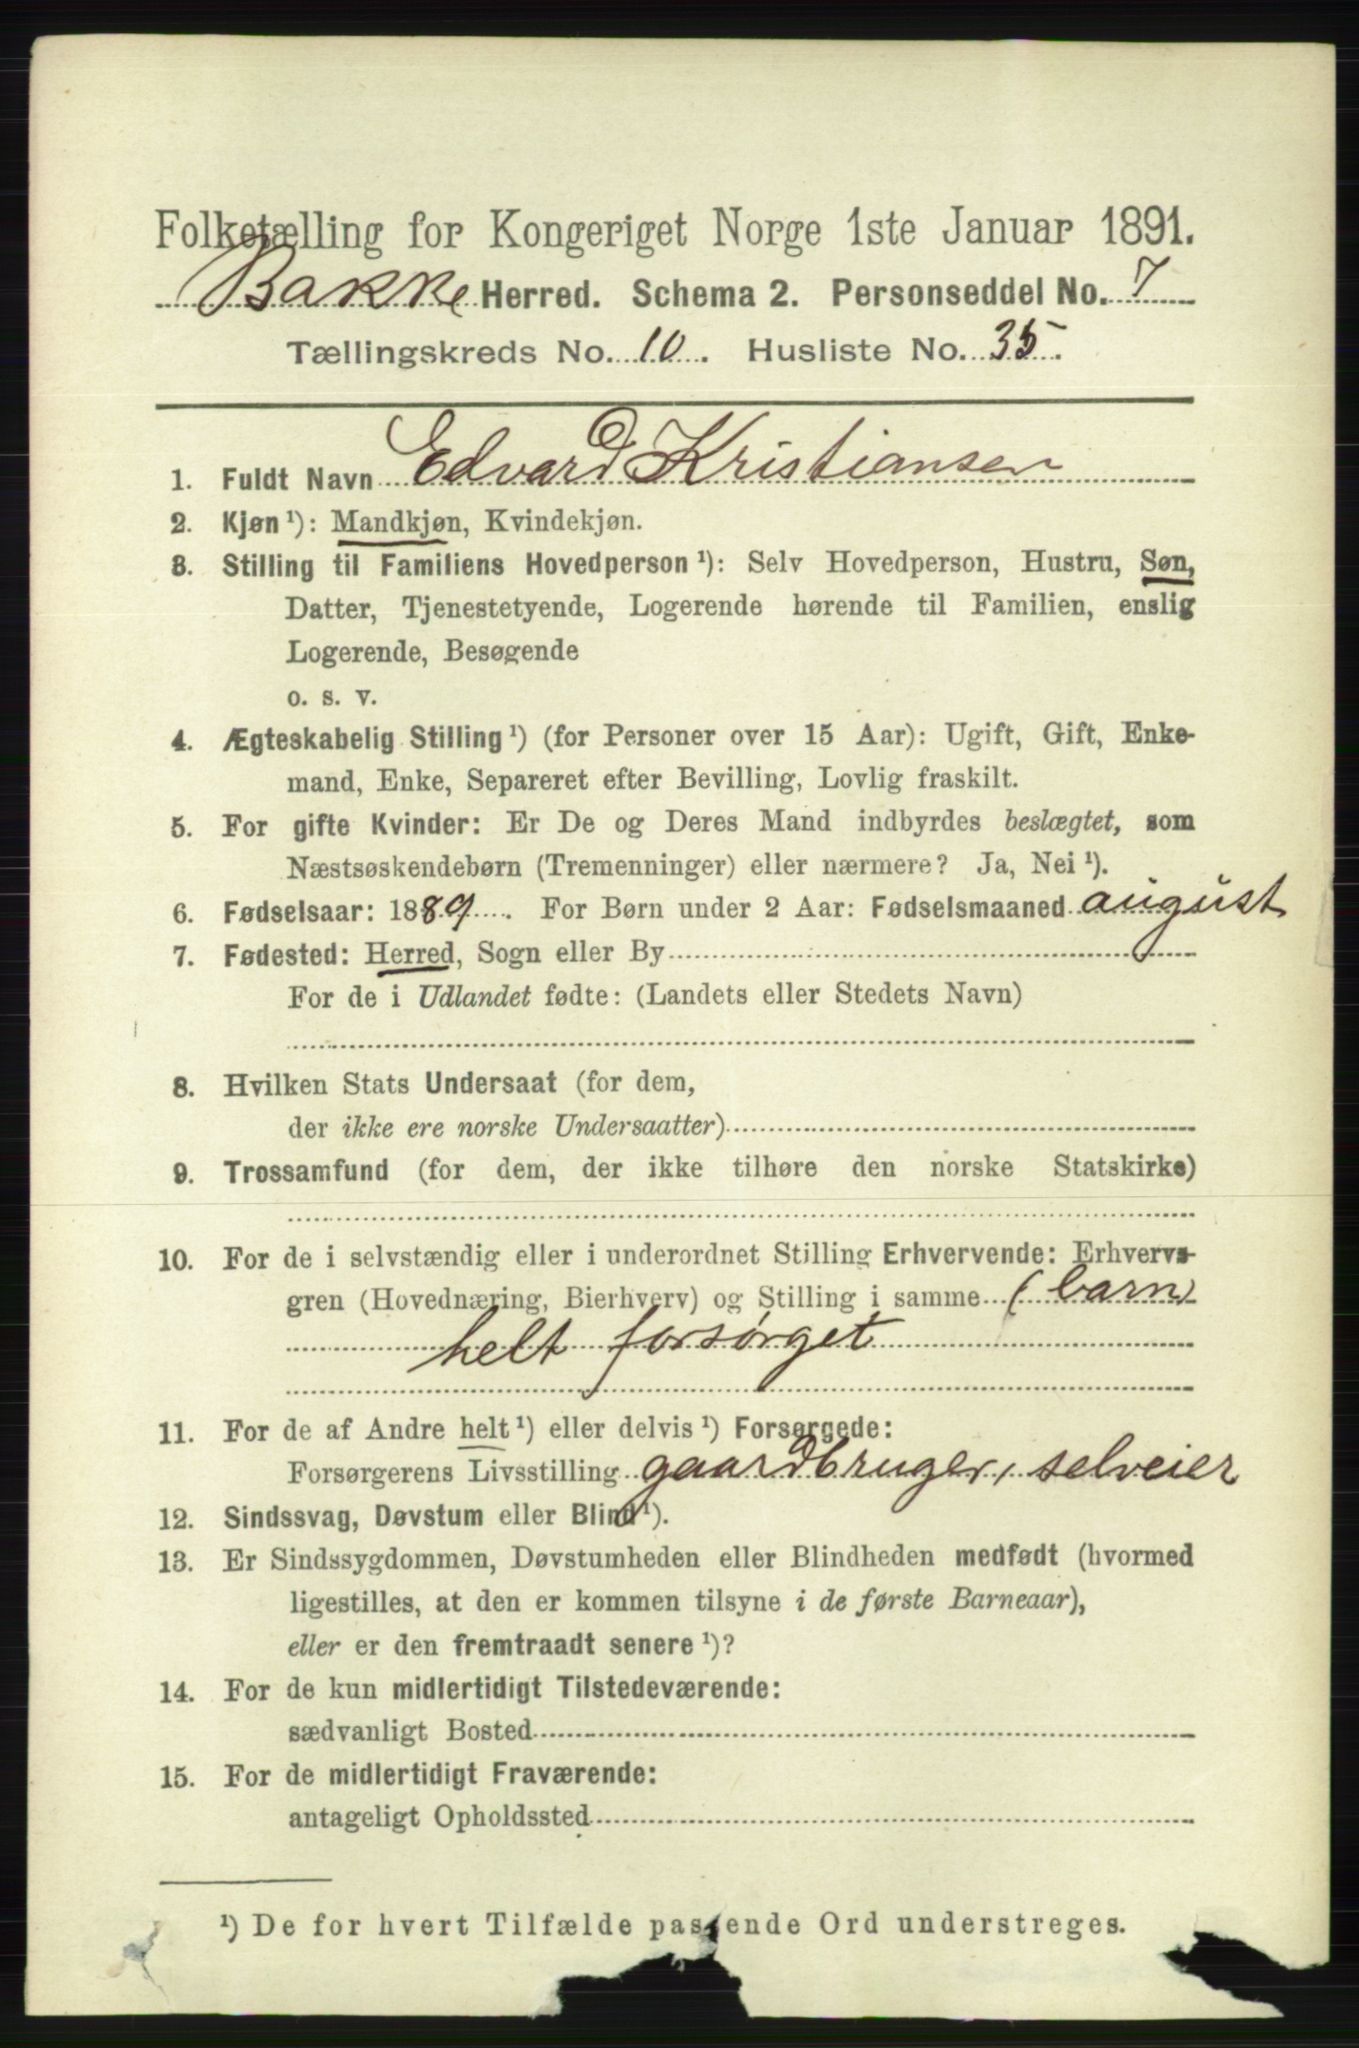 Folketælling for Kongeriget Norge 1ste Januar 1891.
Bakke Herred. Schema 2. Personseddel No. 7
Tællingskreds No. 10. Husliste No. 35.
1. Fuldt Navn Edvard Kristiansen
2. Kjøn ¹): Mandkjøn, Kvindekjøn.
3. Stilling til Familiens Hovedperson ¹): Selv Hovedperson, Hustru, Søn,
Datter, Tjenestetyende, Logerende hørende til Familien, enslig
Logerende, Besøgende
o. s. v.
4. Ægteskabelig Stilling ¹) (for Personer over 15 Aar): Ugift, Gift, Enke-
mand, Enke, Separeret efter Bevilling, Lovlig fraskilt.
5. For gifte Kvinder: Er De og Deres Mand indbyrdes beslægtet, som
Næstsøskendebørn (Tremenninger) eller nærmere? Ja, Nei ¹).
6. Fødselsaar: 1889. For Børn under 2 Aar: Fødselsmaaned august
7. Fødested: Herred, Sogn eller By
For de i Udlandet fødte: (Landets eller Stedets Navn)
8. Hvilken Stats Undersaat (for dem,
der ikke ere norske Undersaatter)
9. Trossamfund (for dem, der ikke tilhøre den norske Statskirke)
10. For de i selvstændig eller i underordnet Stilling Erhvervende: Erhvervs-
gren (Hovednæring, Bierhverv) og Stilling i samme (barn)
helt forsørget
11. For de af Andre helt ¹) eller delvis ¹) Forsørgede:
Forsørgerens Livsstilling gaardbruger, selveier
12. Sindssvag, Døvstum eller Blind ¹).
13. Er Sindssygdommen, Døvstumheden eller Blindheden medfødt (hvormed
ligestilles, at den er kommen tilsyne i de første Barneaar),
eller er den fremtraadt senere ¹)?
14. For de kun midlertidigt Tilstedeværende:
sædvanligt Bosted
15. For de midlertidigt Fraværende:
antageligt Opholdssted
¹) De for hvert Tilfælde passende Ord understreges.